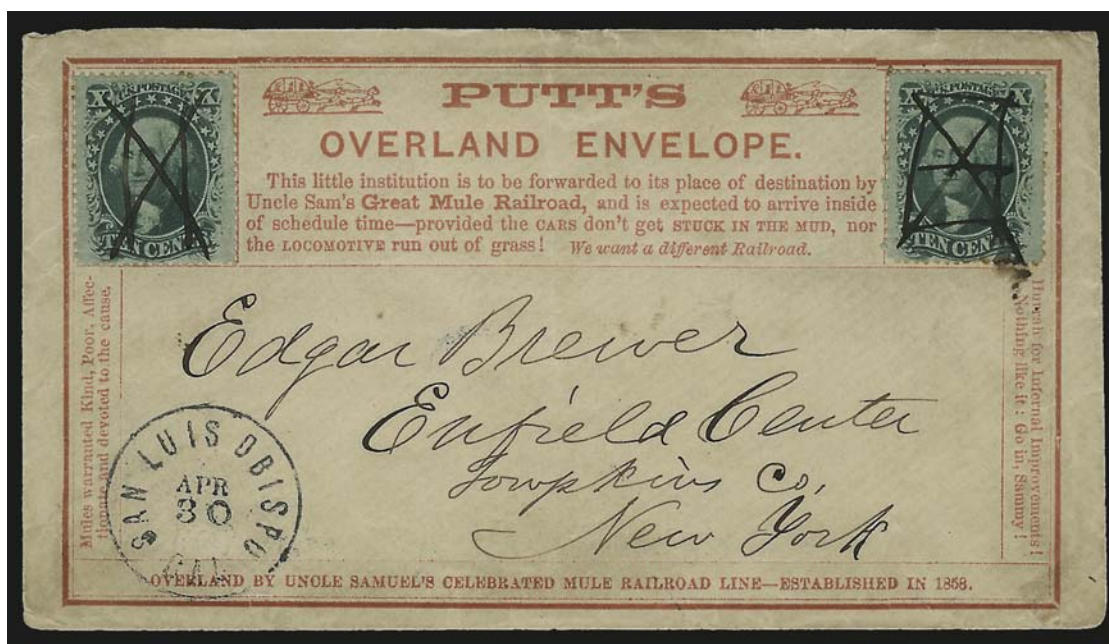 X U.S. POSTAGE X
TEN CENTS
PUTT'S
OVERLAND ENVELOPE.
This little institution is to be forwarded to its place of destination by
Uncle Sam's Great Mule Railroad, and is expected to arrive inside
of schedule time—provided the CARS don't get STUCK IN THE MUD, nor
the LOCOMOTIVE run out of grass! We want a different Railroad.
X U.S. POSTAGE X
TEN CENTS
Mules warranted Kind, Poor, Affec-
tionate and devoted to the cause.
Edgar Brewer
Enfield Center
Tompkins Co,
New York
Hurrah for Infernal Improvements!
Nothing like it: Go in, Sammy!
SAN LUIS OBISPO
APR
30
CAL
OVERLAND BY UNCLE SAMUEL'S CELEBRATED MULE RAILROAD LINE—ESTABLISHED IN 1858.